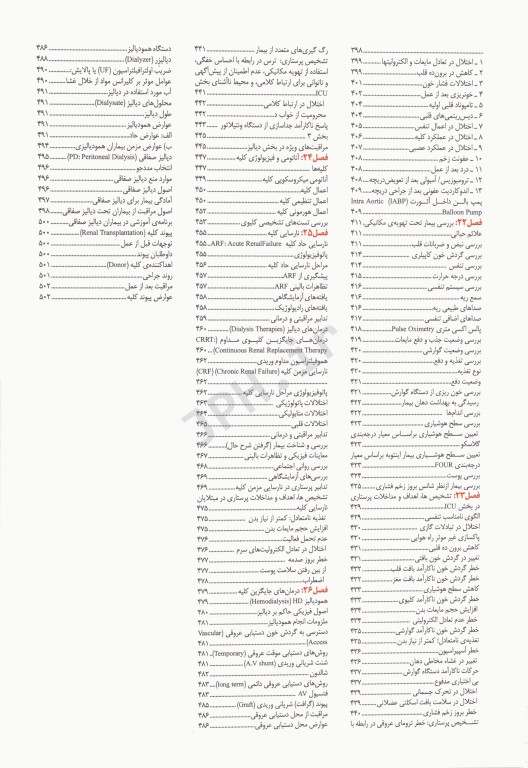 ۳۹۸
۱ ـ اختلال در تعادل مایعات و الکترولیتها ۳۹۹
۲ ـ کاهش در برون‌ده قلب ۳۹۹
۳ ـ اختلالات فشار خون ۴۰۱
۴ ـ خونریزی بعد از عمل ۴۰۲
۵ ـ تامپوناد قلبی اولیه ۴۰۴
۶ ـ دیس‌ریتمی‌های قلبی ۴۰۴
۷ ـ اختلال در اعمال تنفس ۴۰۵
۸ ـ اختلال در عملکرد کلیه ۴۰۶
۹ ـ اختلال در عملکرد عصبی ۴۰۷
۱۰ ـ عفونت زخم ۴۰۸
۱۱ ـ درد بعد از عمل ۴۰۸
۱۲ ـ ترومبوزیس/ آمبولی بعد از تعویض‌دریچه ۴۰۸
۱۳ ـ اندوکاردیت عفونی بعد از جراحی دریچه ۴۰۹
پمپ بالن داخل آئورت (IABP) Intra Aortic
Balloon Pump ۴۰۹
فصل۲۲: بررسی بیمار تحت تهویه‌ی مکانیکی ۴۱۱
علائم حیاتی ۴۱۱
بررسی نبض و ضربانات قلب ۴۱۱
بررسی گردش خون کاپیلاری ۴۱۴
بررسی تنفس ۴۱۴
بررسی درجه حرارت ۴۱۵
بررسی سیستم تنفسی ۴۱۶
سمع ریه ۴۱۶
صداهای طبیعی ریه ۴۱۶
صداهای اضافی تنفسی ۴۱۷
پالس اکسی متری Pulse Oximetry ۴۱۸
بررسی وضعیت جذب و دفع مایعات ۴۱۹
بررسی وضعیت گوارشی ۴۲۰
بررسی تغذیه و دفع ۴۲۰
نوع تغذیه ۴۲۰
وضعیت دفع ۴۲۱
بررسی خون ریزی از دستگاه گوارش ۴۲۱
رسیدگی به بهداشت دهان بیمار ۴۲۲
بررسی اندام‌ها ۴۲۲
بررسی سطح هوشیاری ۴۲۳
تعیین سطح هوشیاری براساس معیار درجه‌بندی
گلاسکو ۴۲۳
تعیین سطح هوشیاری بیمار اینتوبه براساس معیار
درجه‌بندی FOUR ۴۲۳
بررسی پوست ۴۲۴
بررسی بیمار ازنظر شانس بروز زخم فشاری ۴۲۵
فصل۲۳: تشخیص ها، اهداف و مداخلات پرستاری
در بخش ICU ۴۲۹
الگوی نامناسب تنفسی ۴۲۹
اختلال در تبادلات گازی ۴۳۰
پاکسازی غیر موثر راه هوایی ۴۳۰
کاهش برون ده قلبی ۴۳۱
تغییر در گردش خون بافتی ۴۳۱
خطر گردش خون ناکارآمد بافت قلب ۴۳۲
خطر گردش خون ناکارآمد بافت مغز ۴۳۲
کاهش سطح هوشیاری ۴۳۳
خطر گردش خون ناکارآمد کلیوی ۴۳۳
افزایش حجم مایعات بدن ۴۳۴
خطر عدم تعادل الکترولیتی ۴۳۴
خطر گردش خون ناکارآمد گوارشی ۴۳۵
تغذیه‌ی نامتعادل؛ کمتر از نیاز بدن ۴۳۵
خطر آسپیراسیون ۴۳۶
تغییر در غشاء مخاطی دهان ۴۳۶
حرکات ناکارآمد دستگاه گوارش ۴۳۷
بی اختیاری مدفوع ۴۳۷
اختلال در تحرک جسمانی ۴۳۹
اختلال در سلامت بافت اسکلتی عضلانی ۴۳۹
خطر بروز زخم فشاری ۴۴۰
تشخیص پرستاری: خطر ترومای عروقی در رابطه با
رگ گیری‌های متعدد از بیمار ۴۴۱
تشخیص پرستاری: ترس در رابطه با احساس خفگی،
استفاده از تهویه مکانیکی، عدم اطمینان از پیش‌آگهی
و ناتوانی برای ارتباط کلامی، و محیط ناآشنای بخش
ICU ۴۴۱
اختلال در ارتباط کلامی ۴۴۲
محرومیت از خواب ۴۴۲
پاسخ ناکارآمد جداسازی از دستگاه ونتیلاتور ۴۴۳
بخش ۳ ۴۴۵
مراقبت‌های ویژه در بخش دیالیز ۴۴۵
فصل۲۴: آناتومی و فیزیولوژی کلیه ۴۴۷
کلیه‌ها ۴۴۷
آناتومی میکروسکوپی کلیه ۴۴۸
اعمال کلیه ۴۵۰
اعمال تنظیمی کلیه ۴۵۰
اعمال هورمونی کلیه ۴۵۲
بررسی تست‌های تشخیصی کلیوی ۴۵۳
فصل۲۵: نارسایی کلیه ۴۵۵
نارسایی حاد کلیه ARF: Acute RenalFailure ۴۵۵
پاتوفیزیولوژی ۴۵۵
مراحل نارسایی حاد کلیه ۴۵۶
پیشگیری از ARF ۴۵۷
تظاهرات بالینی ARF ۴۵۷
یافته‌های آزمایشگاهی ۴۵۸
یافته‌های رادیولوژیک ۴۵۸
تدابیر مراقبتی و درمانی ۴۵۹
درمان‌های دیالیز (Dialysis Therapies) ۴۶۰
درمان‌های جایگزین کلیوی مداوم (CRRT:
Continuous Renal Replacement Therapy) ۴۶۰
هموفیلتراسیون مداوم وریدی ۴۶۲
نارسایی مزمن کلیه (Chronic Renal Failure) (CRF)
۴۶۲
پاتوفیزیولوژی مراحل نارسایی کلیه ۴۶۲
اختلالات پاتولوژیکی ۴۶۳
اختلالات متابولیکی ۴۶۴
اختلالات قلبی ۴۶۵
تدابیر مراقبتی و درمانی ۴۶۶
بررسی و شناخت بیمار (گرفتن شرح حال) ۴۶۶
معاینات فیزیکی و تظاهرات بالینی ۴۶۷
بررسی روانی اجتماعی ۴۶۸
بررسی‌های آزمایشگاهی ۴۶۹
تدابیر پرستاری در نارسایی مزمن کلیه ۴۶۹
تشخیص ها، اهداف و مداخلات پرستاری در مبتلایان
نارسایی کلیه ۴۷۵
تغذیه نامتعادل: کمتر از نیاز بدن ۴۷۵
افزایش حجم مایعات بدن ۴۷۵
عدم تحمل فعالیت ۴۷۶
اختلال در تعادل الکترولیت‌های سرم ۴۷۶
خطر بروز صدمه ۴۷۷
از بین رفتن سلامت پوست ۴۷۷
اضطراب ۴۷۸
فصل۲۶: درمان‌های جایگزین کلیه ۴۷۹
همودیالیز HD (Hemodialysis) ۴۷۹
اصول فیزیکی حاکم بر دیالیز ۴۸۰
ملزومات انجام همودیالیز ۴۸۱
دسترسی به گردش خون دستیابی عروقی (Vascular
Access) ۴۸۱
روش‌های دستیابی موقت عروقی (Temporary) ۴۸۱
شنت شریانی وریدی (A.V shunt) ۴۸۱
شالدون ۴۸۲
روش‌های دستیابی عروقی دائمی (long term) ۴۸۳
فیستول AV ۴۸۳
پیوند (گرافت) شریانی وریدی (Graft) ۴۸۵
مراقبت از محل دستیابی عروقی ۴۸۶
عوارض محل دستیابی عروقی ۴۸۶
دستگاه همودیالیز ۴۸۶
دیالیزر (Dialyzer) ۴۸۸
ضریب اولترافیلتراسیون (UF) یا پالایش ۴۹۰
عوامل موثر بر کلیرانس مواد از خلال غشا ۴۹۰
آب مورد استفاده در دیالیز ۴۹۱
محلول‌های دیالیز (Dialysate) ۴۹۱
طول دیالیز ۴۹۱
عوارض همودیالیز ۴۹۱
الف: عوارض حاد ۴۹۱
ب) عوارض مزمن بیماران همودیالیزی ۴۹۴
دیالیز صفاقی (PD: Peritoneal Dialysis) ۴۹۵
انتخاب مددجو ۴۹۶
موارد منع دیالیز صفاقی ۴۹۶
اصول دیالیز صفاقی ۴۹۶
آمادگی بیمار برای دیالیز صفاقی ۴۹۷
اصول مراقبت از بیماران تحت دیالیز صفاقی ۴۹۸
برنامه‌ی آموزشی در بیماران دیالیز صفاقی ۵۰۰
پیوند کلیه (Renal Transplantation) ۵۰۰
توجهات قبل از عمل ۵۰۰
داوطلبان پیوند ۵۰۰
اهداکننده‌ی کلیه (Donor) ۵۰۱
روند جراحی ۵۰۱
مراقبت بعد از عمل ۵۰۲
عوارض پیوند کلیه ۵۰۲